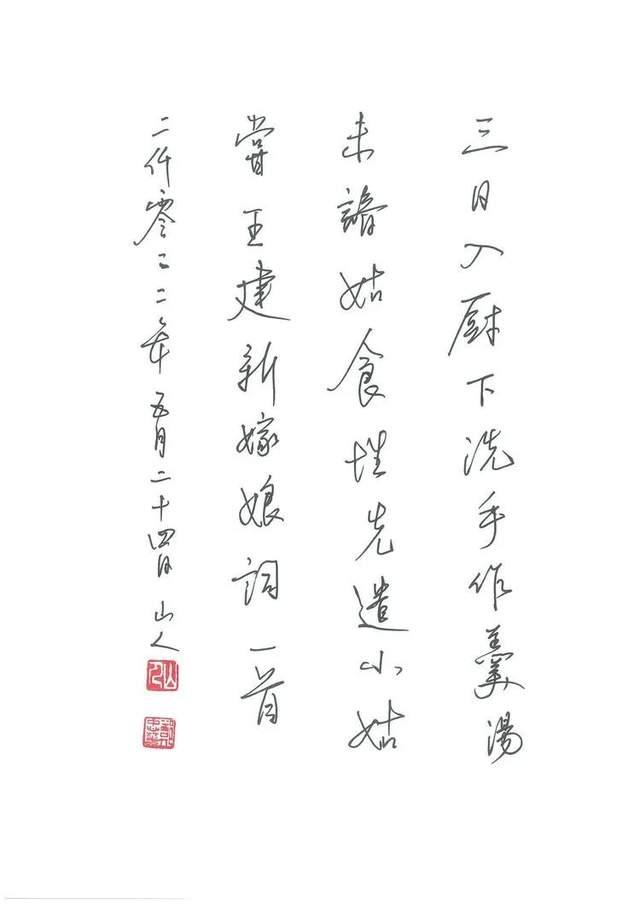 三日入厨下洗手作羹湯
未諳姑食性先遣小姑
嘗王建新嫁娘詞一首
二仟零二二年五月二十四日山人
山人